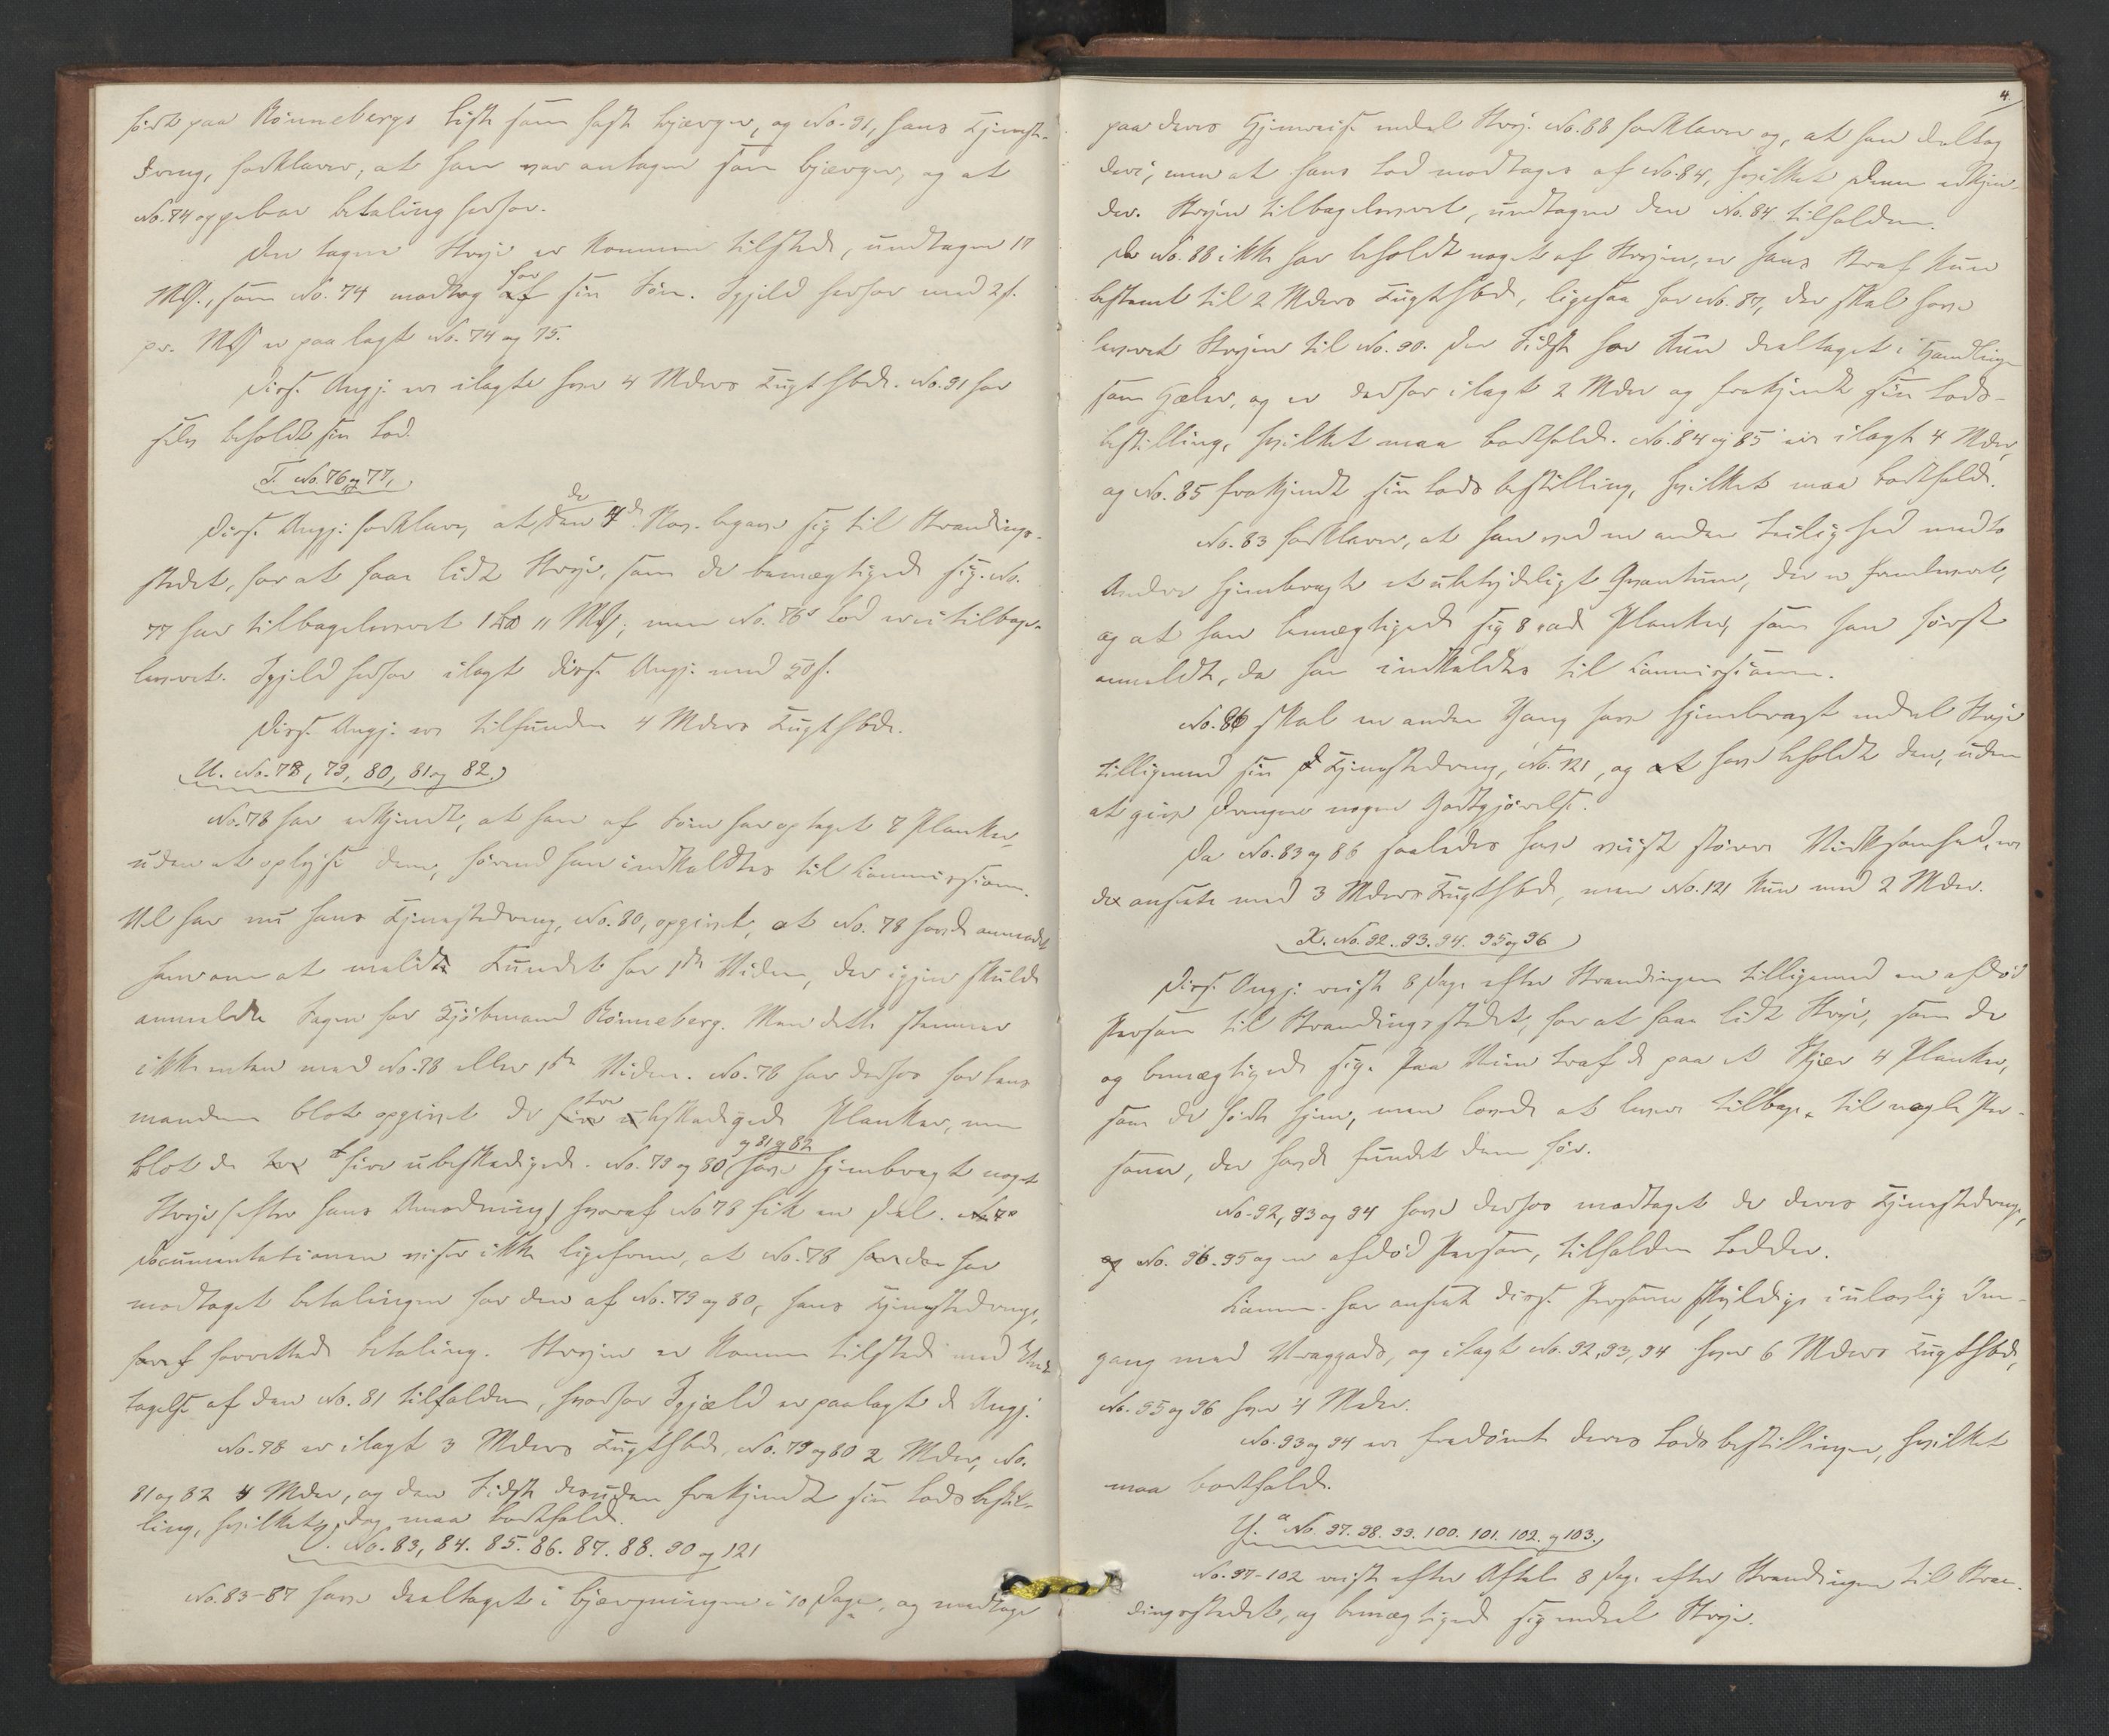 ført paa Rønnebergs Liste som fast bjærger, og No. 91, hans Tjeneste-
dreng, forklarer, at han var antagen som bjærger, og at
No. 74 oppebar betaling herfor.
Den tagne Straje er kommen tilstede, undtagen 17
Mk, som No. 74 modtog af for sin Søn. Igjeld herfor med 2 s.
pr. Mk er paalagt No. 74 og 75.
Disse Angj. ere ilagte hver 4 Mdrs Tugthbde. No. 91 har
selv beholdt sin Lod.
T. No. 76 og 77,
Disse Angj. forklare, at den de 4de Nov. begave sig til Strandings-
stedet, for at faae lidt Straje, som de bemægtigede sig. No.
77 har tilbageleveret 11 Mk; men No. 76s Lod er ei tilbage-
leveret. Igjeld herfor ilagt disse Angj. med 50 s.
Disse Angj. ere tilfunden 4 Mdrs Tugthbde.
U. No. 78, 79, 80, 81 og 82.
No. 78 har erkjendt, at han af Søen har optaget 8 Planker,
uden at oplyse dem, førend han indkaldtes til Commissionen.
Vel har nu hans Tjenestedreng, No. 80, opgivet, at No. 78 havde anmodet
ham om at melde Fundet for 1ste Vidne, der igjen skulde
anmelde Sagen for Kjøbmand Rønneberg. Men dette stemmer
ikke enten med No. 78 eller 1ste Vidne. No. 78 har derhos for Lens-
manden blot opgivet de fire tvo beskadigede Planker, men
blot de fire ubeskadigede. No. 79 og 80 og 81 og 82 have hjembragt noget
Straje (efter hans Anmodning) hvoraf No 78 fik en Del.
Documentationen viser ikke ligefrem, at No. 78 har
modtaget betalingen for den af No. 79 og 80, hans Tjenestedrenge,
heraf forrettede betaling. Strajen er kommen tilstede med Und-
tagelse af den No. 81 tilfaldne, hvorfor Igjæld er paalagt d. Angj.
No. 78 er ilagt 3 Mdrs Tugthbde, No. 79 og 80 2 Mdr, No.
81 og 82 4 Mdr, og den Sidste desuden frakjendt sin Lodsbestil-
ling, hvilket dog maa bortfalde.
V. No. 83, 84. 85. 86. 87. 88. 90 og 121
No. 83-87 have deeltaget i bjærgningen i 10 Dage, og medtoge
4.
paa deres Hjemreise endel Straj. No. 88 forklarer og, at han deltog
deri, men at hans Lod modtoges af No. 84, hvilket denne erkjen-
der. Strajen tilbageleveret, undtagen den No. 84 tilfaldne.
Da No. 88 ikke har beholdt noget af Strajen, er hans Straf kun
bestemt til 2 Mdrs Tugthbde, ligesaa for No. 87, der skal have
leveret Strajen til No. 90. Den Sidste har kun deeltaget i Handlingen
som Hæler, og er derfor ilagt 2 Mdr og frakjendt sin Lods-
bestilling, hvilket maa bortfalde. No. 84 og 85 ere ilagt 4 Mdr,
og No. 85 frakjendt sin Lodsbestilling, hvilket maa bortfalde.
No. 83 forklarer, at han ved en anden Leilighed med to
Andre hjembragte et ubetydeligt Qvantum, der er fremleveret,
og at han bemægtigede sig 8 Planker, som han først
anmeldte, da han indkaldtes til Commissionen.
No. 86 skal en anden Gang have hjembragt endel Straje
tilligemed sin Tjenestedreng, No. 121, og at have beholdt den, uden
at give Drengen nogen Godtgjørelse.
Da No. 83 og 86 saaledes have viist større Virksomhed, ere
de ansete med 3 Mdrs Tugthbde, men No. 121 kun med 2 Mdr.
X. No. 92. 93. 94. 95 og 96
Disse Angj. reiste 8 Dage efter Strandingen tilligemed en afdød
Person til Strandingsstedet, for at faae lidt Straje, som de
og bemægtigede sig. Paa Veien traf de paa et Skjær 4 Planker,
som de førte hjem, men lovede at levere tilbage til nogle Per-
soner, der havde fundet dem før.
No. 92, 93 og 94 have derhos modtaget de deres Tjenestedrenge,
No. 96. 95 og en afdød Person, tilfaldne Lodder.
Comm. har anseet disse Personer skyldige i ulovlig Om-
gang med Vraggods, og ilagt No. 92, 93, 94 hver 6 Mdrs Tugthbde,
No. 95 og 96 hver 4 Mdr.
No. 93 og 94 ere fradømt deres Lodsbestillinger, hvilket
maa bortfalde.
Y. a No. 97. 98. 99. 100. 101. 102. og 103.
No. 97-102 reiste efter Aftale 8 Dage efter Strandingen til Stran-
dingsstedet, og bemægtigede sig endeel Straje.